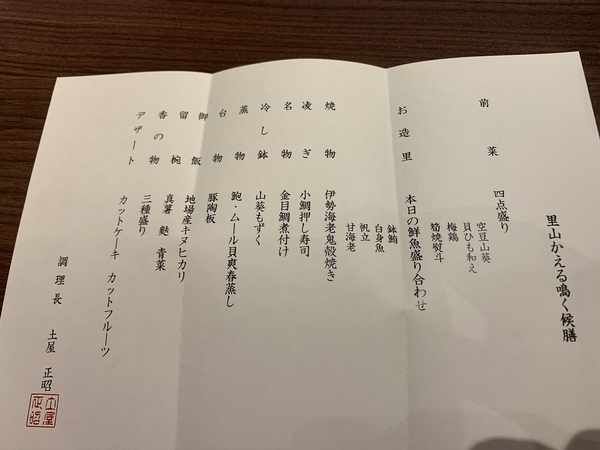 里山かえる鳴く候膳
前菜 四点盛り
空豆山葵
貝ひも和え
梅鶏
筍焼熨斗
お造里 本日の鮮魚盛り合わせ
鉢鮪
白身魚
帆立
甘海老
焼物 伊勢海老鬼殻焼き
凌ぎ 小鯛押し寿司
名物 金目鯛煮付け
冷し鉢 山葵もずく
蒸物 鮑・ムール貝爽春蒸し
台物 豚陶板
御飯 地場産キヌヒカリ
留椀 真薯 麩 青菜
香の物 三種盛り
デザート カットケーキ カットフルーツ
調理長 土屋 正昭
土屋
正昭